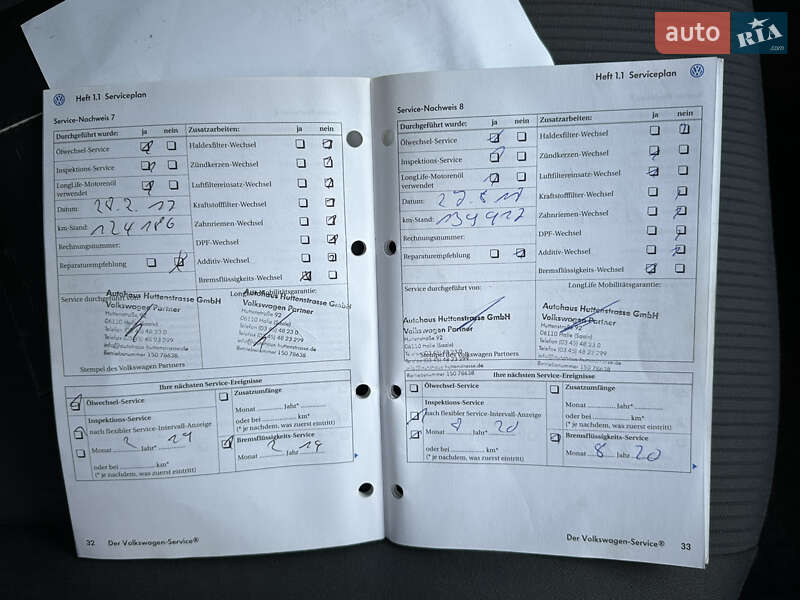 auto RIA .com
Heft 1.1 Serviceplan
Service-Nachweis 7
Durchgeführt wurde: ja nein Zusatzarbeiten: ja nein
Ölwechsel-Service Haldexfilter-Wechsel
Inspektions-Service Zündkerzen-Wechsel
LongLife-Motorenöl verwendet Luftfiltereinsatz-Wechsel
Datum: 28.2.17 Kraftstofffilter-Wechsel
km-Stand: 124186 Zahnriemen-Wechsel
Rechnungsnummer: DPF-Wechsel
Reparaturempfehlung Additiv-Wechsel
Bremsflüssigkeits-Wechsel
Service durchgeführt von: LongLife Mobilitätsgarantie:
Autohaus Huttenstrasse GmbH Autohaus Huttenstrasse GmbH
Volkswagen Partner Volkswagen Partner
Huttenstraße 92 Huttenstraße 92
06110 Halle (Saale) 06110 Halle (Saale)
Telefon (03 45) 48 23 0
Telefax (03 45) 48 23 299
Betriebsnummer 150 78638 Betriebsnummer 150 78638
Stempel des Volkswagen Partners
Ihre nächsten Service-Ereignisse
Ölwechsel-Service Zusatzumfänge
Inspektions-Service Monat Jahr*
nach flexibler Service-Intervall-Anzeige oder bei km*
Monat 2 Jahr* 19 (* je nachdem, was zuerst eintritt)
oder bei km* Bremsflüssigkeits-Service
(* je nachdem, was zuerst eintritt) Monat 2 Jahr 19
32 Der Volkswagen-Service®
Heft 1.1 Serviceplan
Service-Nachweis 8
Durchgeführt wurde: ja nein Zusatzarbeiten: ja nein
Ölwechsel-Service Haldexfilter-Wechsel
Inspektions-Service Zündkerzen-Wechsel
LongLife-Motorenöl verwendet Luftfiltereinsatz-Wechsel
Datum: Kraftstofffilter-Wechsel
km-Stand: 139917 Zahnriemen-Wechsel
Rechnungsnummer: DPF-Wechsel
Reparaturempfehlung Additiv-Wechsel
Bremsflüssigkeits-Wechsel
Service durchgeführt von: LongLife Mobilitätsgarantie:
Autohaus Huttenstrasse GmbH Autohaus Huttenstrasse GmbH
Volkswagen Partner Volkswagen Partner
Huttenstraße 92 Huttenstraße 92
06110 Halle (Saale) 06110 Halle (Saale)
Telefon (03 45) 48 23 0
Telefax (03 45) 48 23 299
Stempel des Volkswagen Partners
Betriebsnummer 150 78638 Betriebsnummer 150 78638
Ihre nächsten Service-Ereignisse
Ölwechsel-Service Zusatzumfänge
Inspektions-Service Monat Jahr*
nach flexibler Service-Intervall-Anzeige oder bei km*
Monat 8 Jahr* 20 (* je nachdem, was zuerst eintritt)
oder bei km* Bremsflüssigkeits-Service
(* je nachdem, was zuerst eintritt) Monat 8 Jahr 20
Der Volkswagen-Service® 33